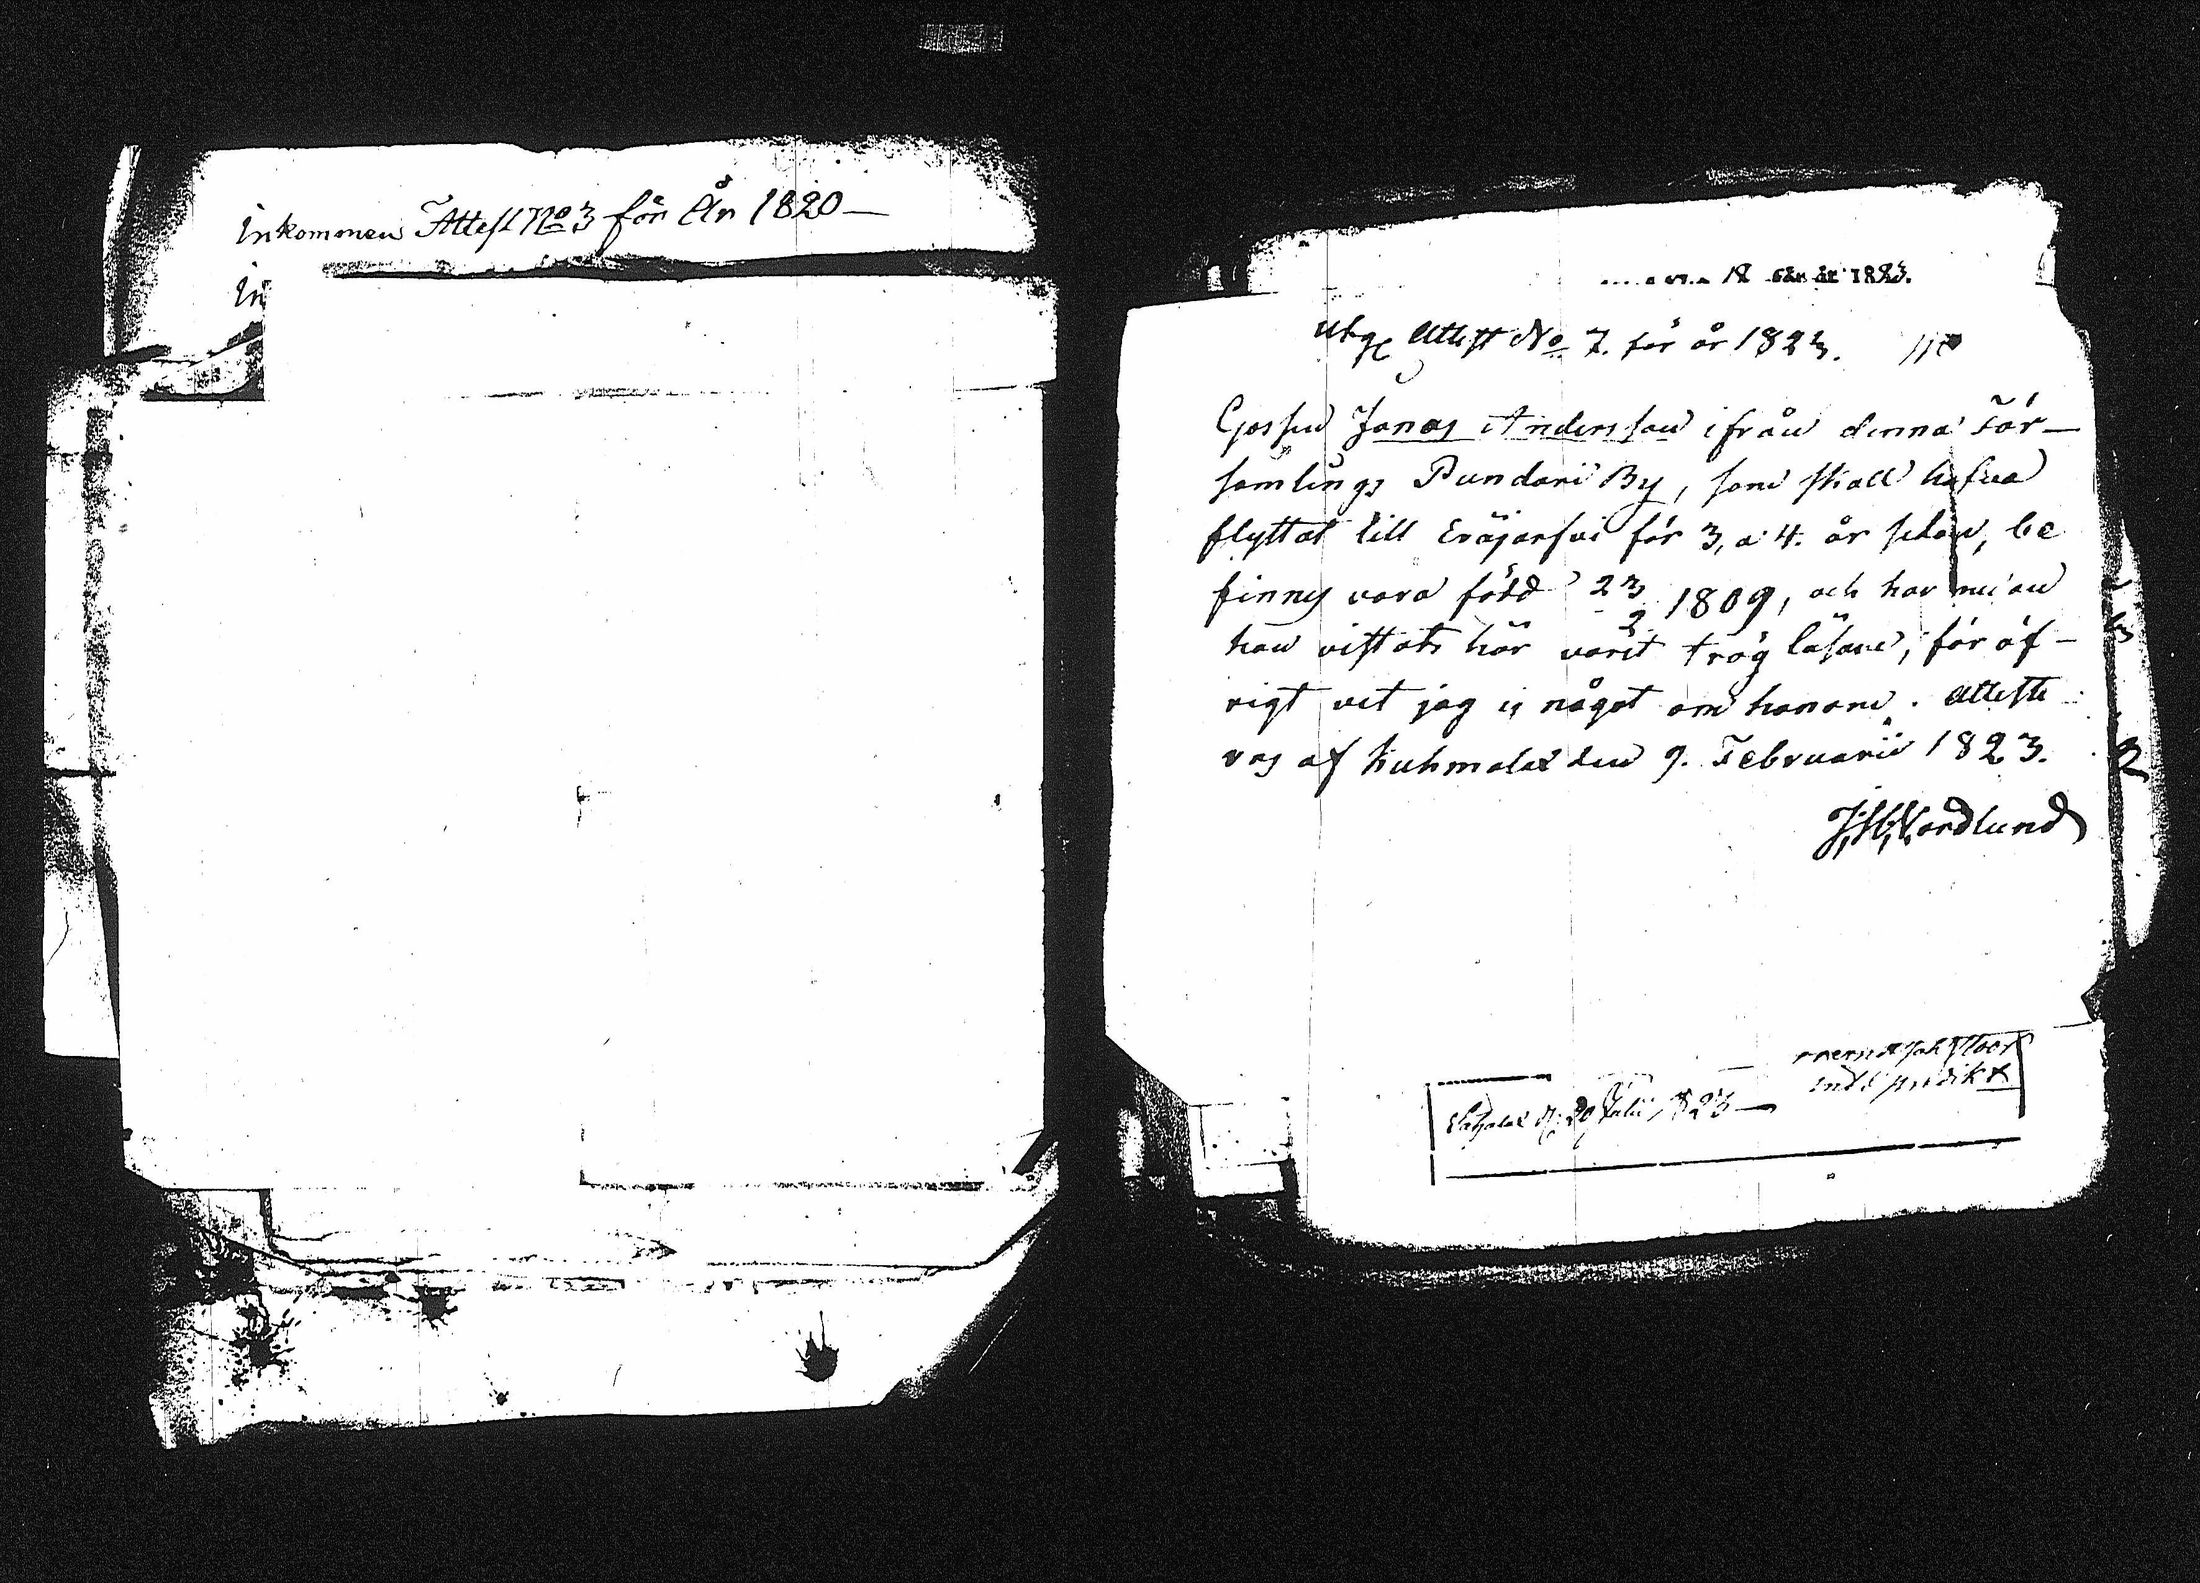 Inkommen Attest No 3 för År 1820 —
In
12 för år 1823.
Utg. Attest No 7. för år 1823.
Gossen Jonas Andersson ifrån denna För-
samlings Pundari By, som skall hafva
flyttat till Eräjärfvi för 3, a 4. år sedan, be
finnes vara född 23/2 1809, och har medan
han vistats här varit trög läsare, för öf-
rigt vet jag ej något om honom. Atteste
ras af Kuhmalax den 9. Februarii 1823.
J. H. Nordlund
d. 20 Julii 1823 —